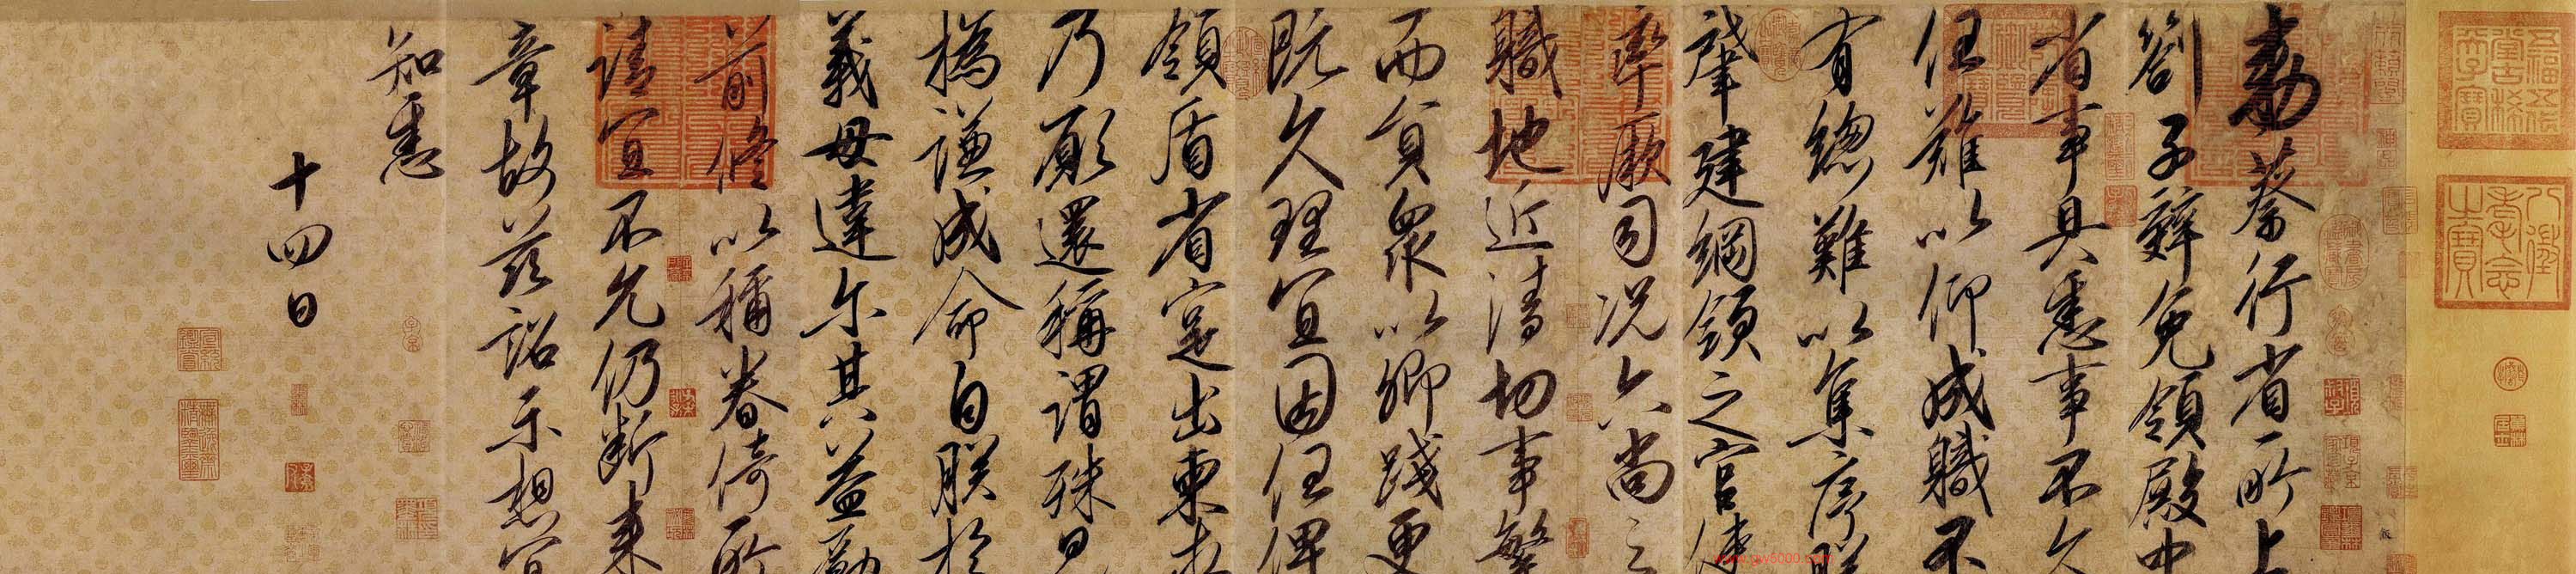 五福五代堂古稀天子寶
八徵耄念之寶
敕蔡行省所上
劄子辭免領殿中
省事具悉事不久
任難以仰成職不
有總難以集序朕
肇建綱領之官使
率厥司況六尚之
職地近清切事繁
而員衆以卿踐更
既久理宜因任俾
領盾省寔出柬求
乃願還稱謂殊見
撝謙成命自朕於
義毋違尔其益勵
前修以稱眷倚所
請宜不允仍斷来
章故茲詔示想宜
知悉
十四日